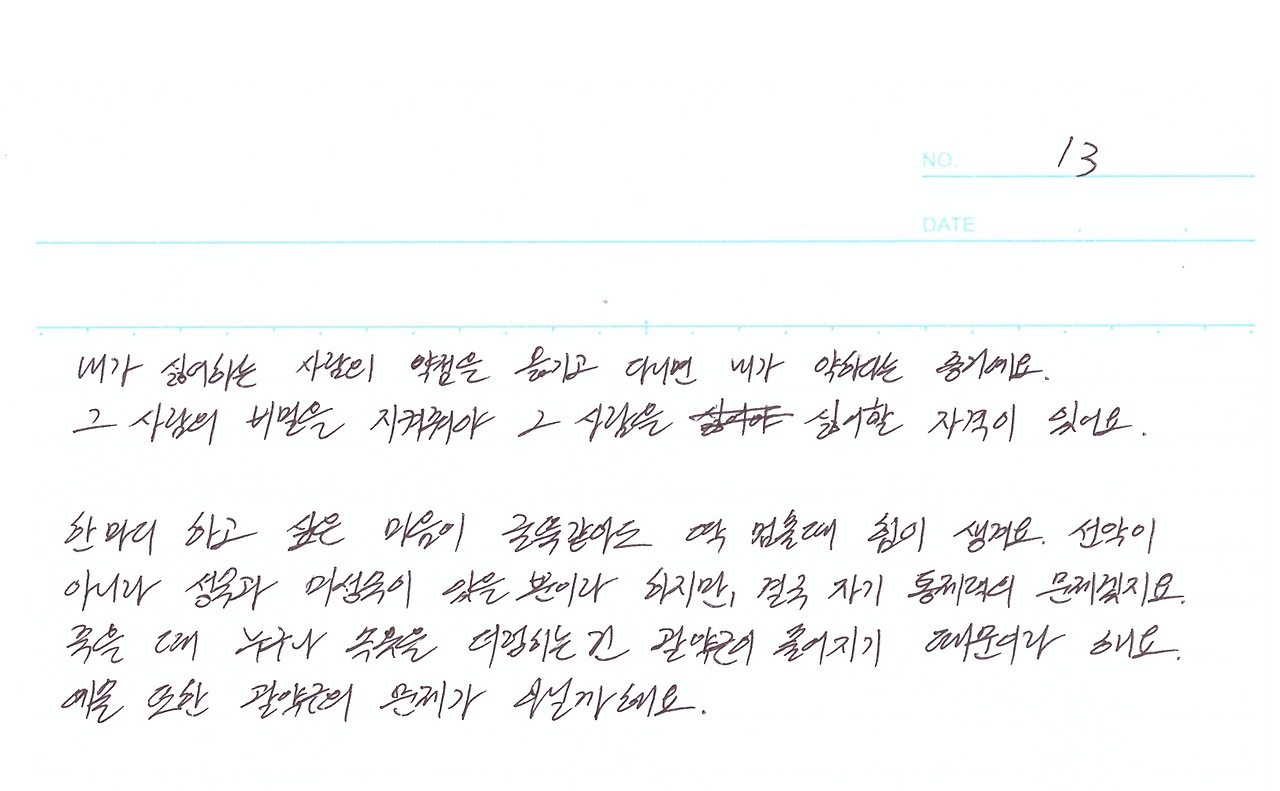 NO. 13
DATE . .
내가 싫어하는 사람의 약점을 옮기고 다니면 내가 약하다는 증거예요.
그 사람의 비밀을 지켜줘야 그 사람을 싫어할 자격이 있어요.
한마디 하고 싶은 마음이 굴뚝같아도 딱 멈출때 힘이 생겨요. 선악이
아니라 성숙과 미성숙이 있을 뿐이라 하지만, 결국 자기 통제력의 문제겠지요.
죽을 때 누구나 속옷을 더럽히는 건 괄약근이 풀어지기 때문이라 해요.
예술 또한 괄약근의 문제가 아닐까 해요.